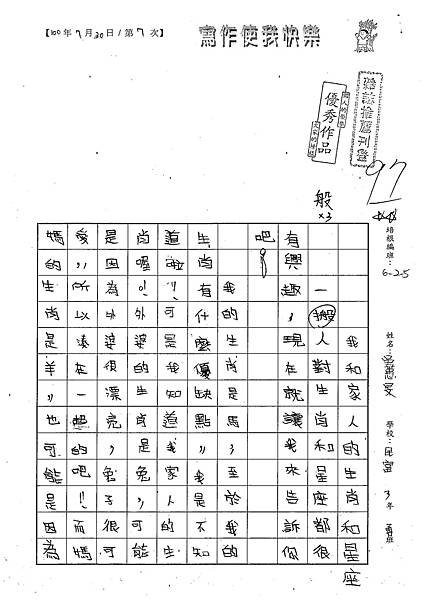 【100年7月30日/第7次】
寫作使我快樂
優秀作品
97
培根編班：6-2-5
學校：民富3年勇班
般×3
我和家人的生肖和星座
一搬人對生肖和星座都很
有興趣，現在就讓我來告訴你
吧！
我的生肖是馬，至於我的
生肖有什麼優缺點，我是不知
道啦！可是我知道我家人的生
肖喔！外婆的生肖是兔，可能
是因為外婆很漂亮，兔子很可
愛，所以湊在一起的吧！而媽
媽的生肖是羊，也可能是因為